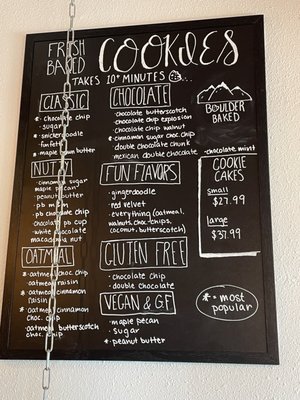 FRESH BAKED COOKIES
TAKES 10* MINUTES
CLASSIC
* chocolate chip
· sugar
* snickerdoodle
· funfetti
* maple butter
NUT
· cinnamon sugar maple pecan
· peanut butter
· pb m
· pb chocolate chip
· chocolate pb cup
· white chocolate macadamia nut
OATMEAL
* oatmeal choc. chip
· oatmeal raisin
* oatmeal cinnamon raisin
· oatmeal cinnamon choc. chip
· oatmeal butterscotch choc. chip
CHOCOLATE
· chocolate butterscotch
· chocolate chip explosion
· chocolate walnut
* cinnamon sugar choc. chip
· double chocolate chunk
· mexican double chocolate
· chocolate mint
FUN FLAVORS
· gingerdoodle
· red velvet
· everything (oatmeal, walnut, choc-chips, coconut, butterscotch)
GLUTEN FREE
· chocolate chip
· double chocolate
VEGAN & GF
· maple pecan
· sugar
* peanut butter
BOULDER BAKED
COOKIE CAKES
small
$27.99
large
$37.99
* = most popular